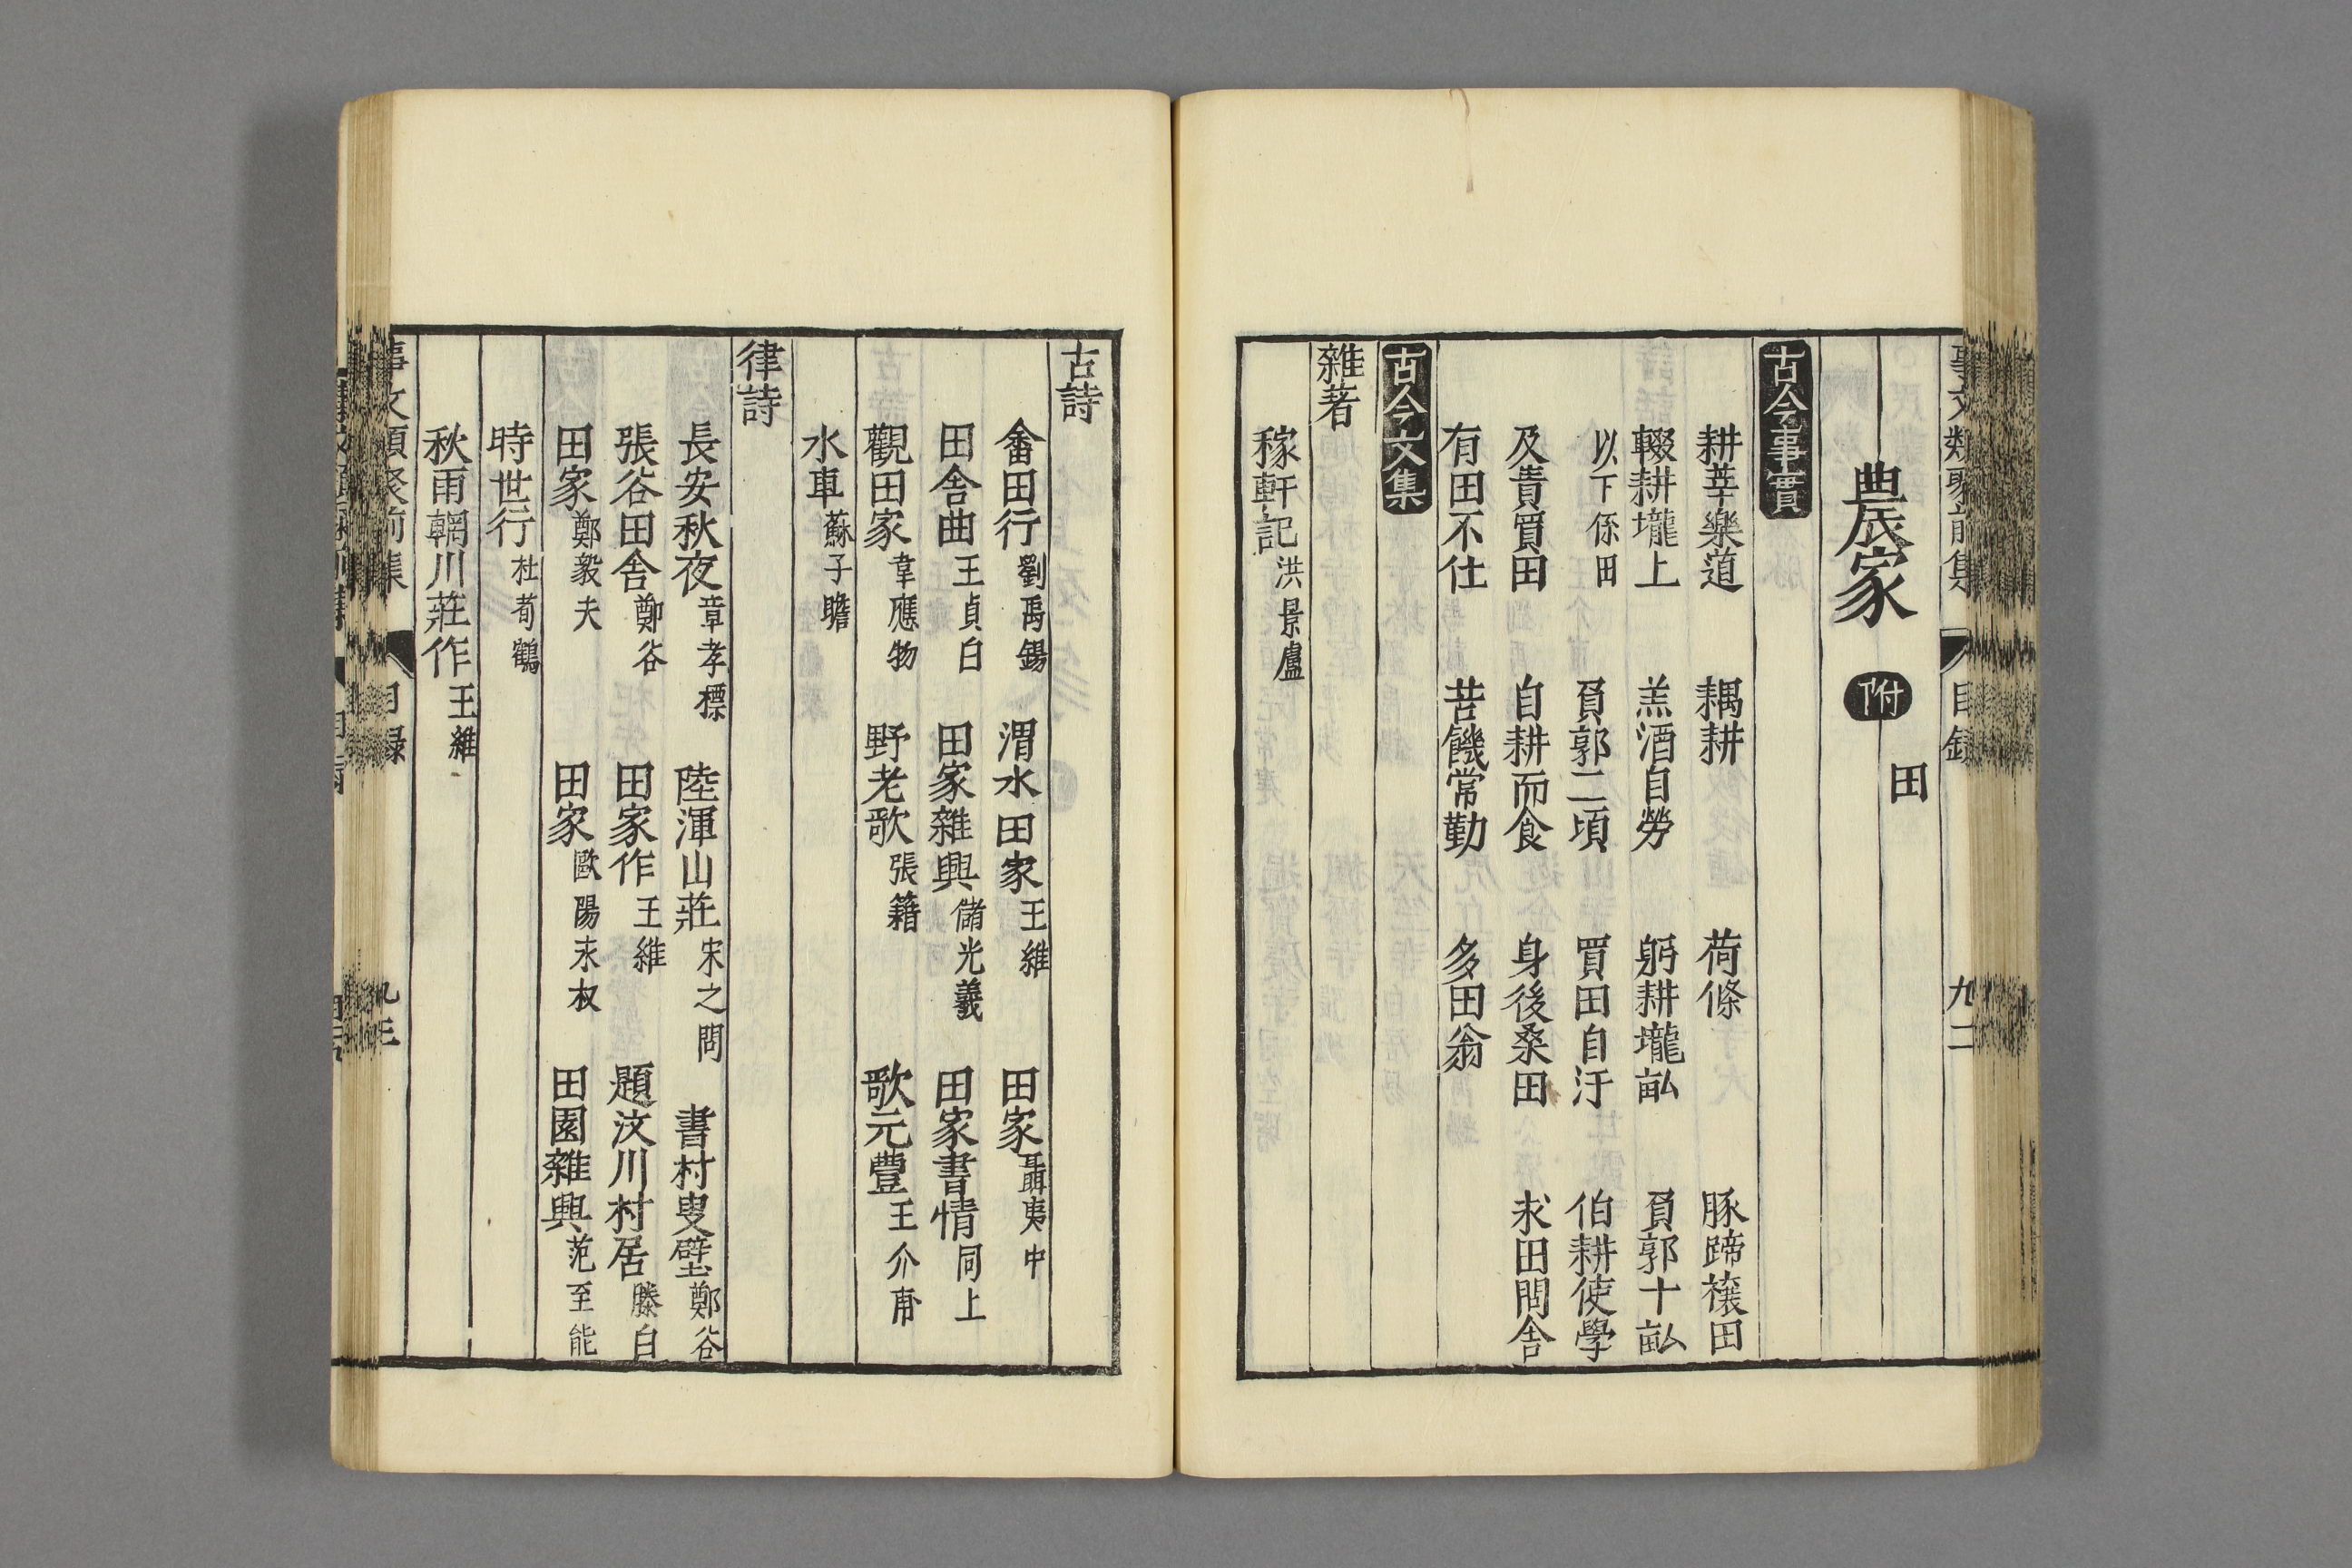 事文類聚前集 目錄 九二
農家 附 田
古今事實
耕莘樂道 耦耕 荷蓧 豚蹄禳田
輟耕壠上 羔酒自勞 躬耕壠畆 負郭十畆
以下係田 負郭二頃 買田自汙 伯耕使學
及貴買田 自耕而食 身後桑田 求田問舍
有田不仕 苦饑常勤 多田翁
古今文集
雜著
稼軒記 洪景盧
古詩
畬田行 劉禹錫 渭水田家 王維 田家 聶夷中
田舍曲 王貞白 田家雜興 儲光羲 田家書情 同上
觀田家 韋應物 野老歌 張籍 歌元豐 王介甫
水車 蘇子瞻
律詩
長安秋夜 章孝標 陸渾山莊 宋之問 書村叟壁 鄭谷
張谷田舍 鄭谷 田家作 王維 題汶川村居 滕白
田家 鄭毅夫 田家 歐陽永叔 田園雜興 范至能
時世行 杜荀鶴
秋雨輞川莊作 王維
事文類聚前集 目録 九三